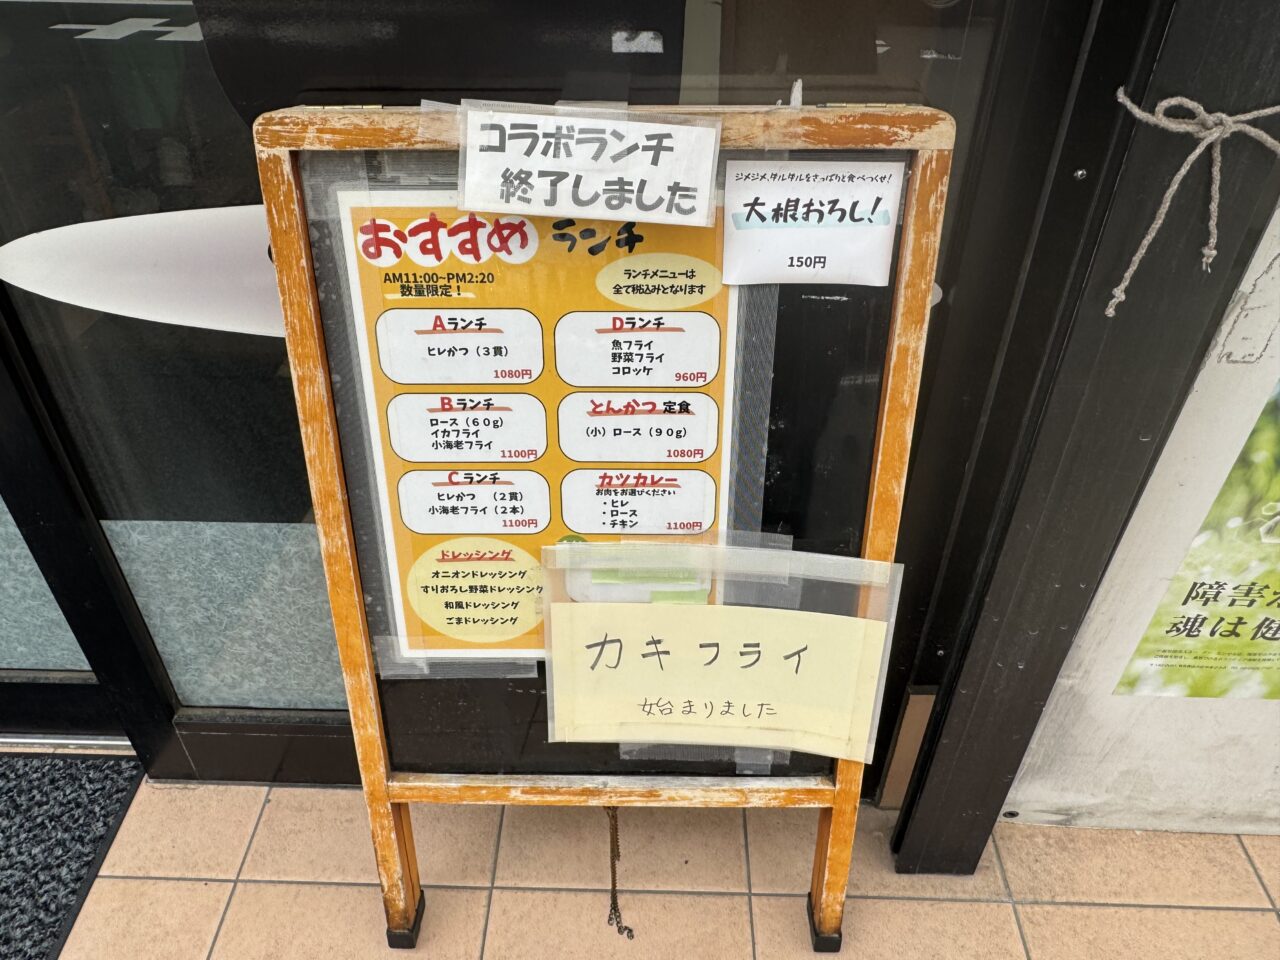 コラボランチ
終了しました
ジメジメ、ダルダルをさっぱりと食べつくせ！
大根おろし！
150円
おすすめ ランチ
AM11:00~PM2:20
数量限定！
ランチメニューは
全て税込みとなります
Aランチ
ヒレかつ（３貫）
1080円
Dランチ
魚フライ
野菜フライ
コロッケ
960円
Bランチ
ロース（６０g）
イカフライ
小海老フライ
1100円
とんかつ 定食
（小）ロース（９０g）
1080円
Cランチ
ヒレかつ （２貫）
小海老フライ（２本）
1100円
カツカレー
お肉をお選びください
・ヒレ
・ロース
・チキン
1100円
ドレッシング
オニオンドレッシング
すりおろし野菜ドレッシング
和風ドレッシング
ごまドレッシング
カキフライ
始まりました
障害
魂は健